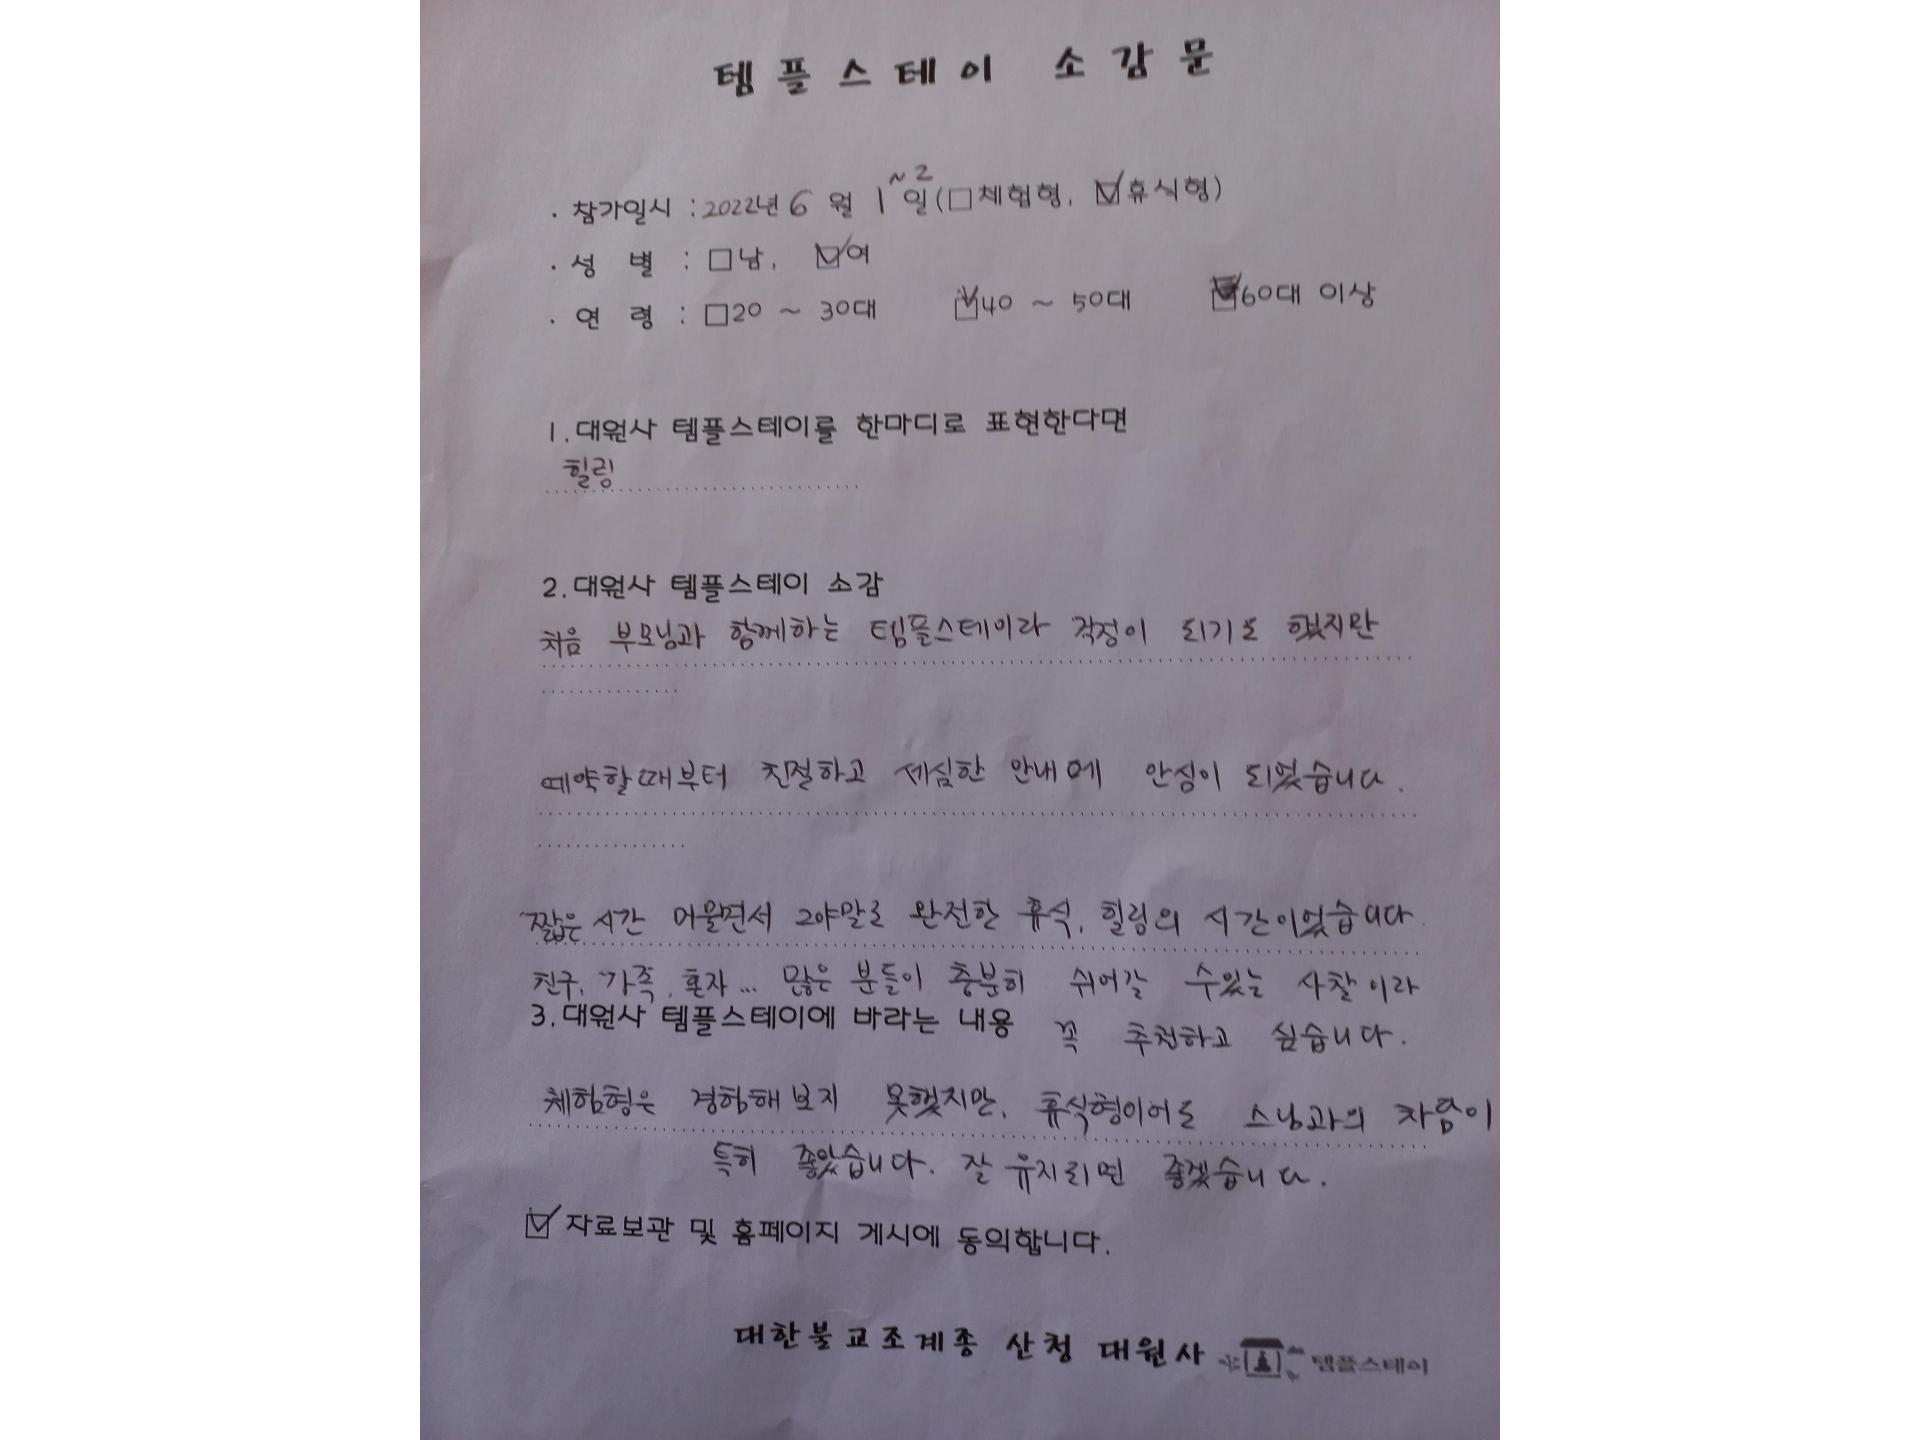 템플스테이 소감문
· 참가일시 : 2022년 6월 1~2일(☐체험형, ☑휴식형)
· 성 별 : ☐남, ☑여
· 연 령 : ☐20 ~ 30대 ☑40 ~ 50대 ☑60대 이상
1.대원사 템플스테이를 한마디로 표현한다면
힐링
2.대원사 템플스테이 소감
처음 부모님과 함께하는 템플스테이라 걱정이 되기도 했지만
예약할때부터 친절하고 세심한 안내에 안심이 되었습니다.
짧은 시간 머물면서 그야말로 완전한 휴식, 힐링의 시간이었습니다
친구, 가족, 혼자... 많은 분들이 충분히 쉬어갈 수있는 사찰이라
꼭 추천하고 싶습니다.
3.대원사 템플스테이에 바라는 내용
체험형은 경험해보지 못했지만, 휴식형이어도 스님과의 차담이
특히 좋았습니다. 잘 유지되면 좋겠습니다.
☑자료보관 및 홈페이지 게시에 동의합니다.
대한불교조계종 산청 대원사 템플스테이